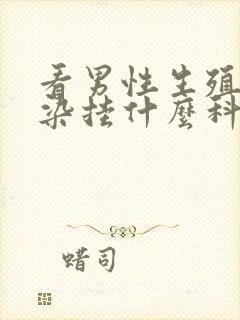 看男性生殖
染挂什麼科
蜡司